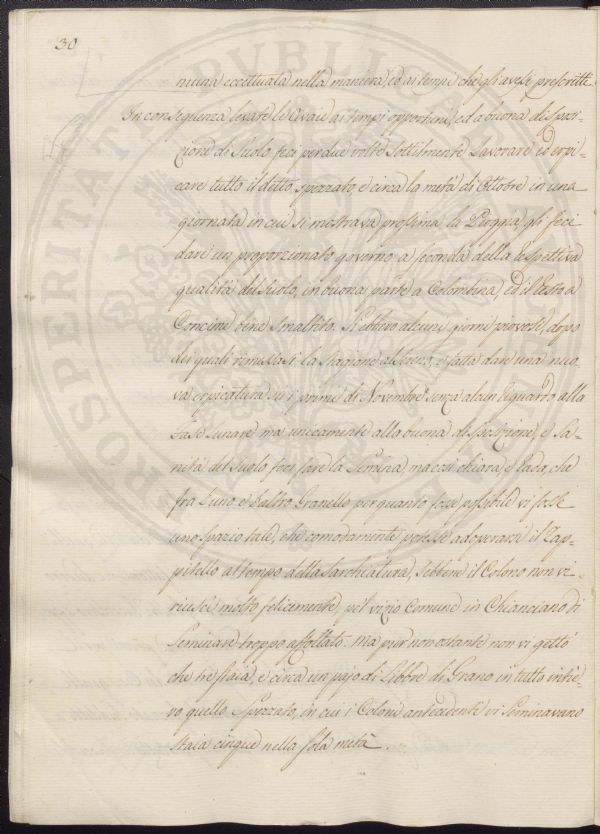 30
niuna eccettuata nella maniera, ed ai tempi che gli avessi prescritti.
In conseguenza levate le ai tempi opportuni, ed a buona dispozi-
zione di suolo feci per due volte sottilmente lavorare ed erpi-
care tutto il detto spezzato, e circa la metà di Ottobre in una
giornata in cui si mostrava prossima la Pioggia gli feci
dare un proporzionato governo a seconda della respettiva
qualità del suolo, in buona parte a Colombina, ed il resto a
Concime bene smaltito. Si ebbero alcuni giorni piovosi, dopo
dei quali rimessasi la stagione al e fatta dare una nuo-
va erpicatura sui primi di Novembre senza alcun riguardo alla
fase Lunare ma unicamente alla buona disposizione, e sa-
nità del suolo feci fare la sementa ma così chiara, e rada, che
fra l'uno e l'altro Granello per quanto fosse possibile vi fosse
uno spazio tale, che comodamente potesse adoperarsi il Zap-
pitello al tempo della sarchiatura, sebbene il Colono non vi
riuscì molto felicemente, pel vizio comune in Chianciano di
seminare troppo affollato: ma pur nonostante non vi gettò
che tre staia, e circa un pajo di Libbre di Grano in tutto intie-
ro quello spezzato, in cui i Coloni antecedenti vi seminavano
staia cinque nella sola metà.
PROSPERITATI PVBLICAE